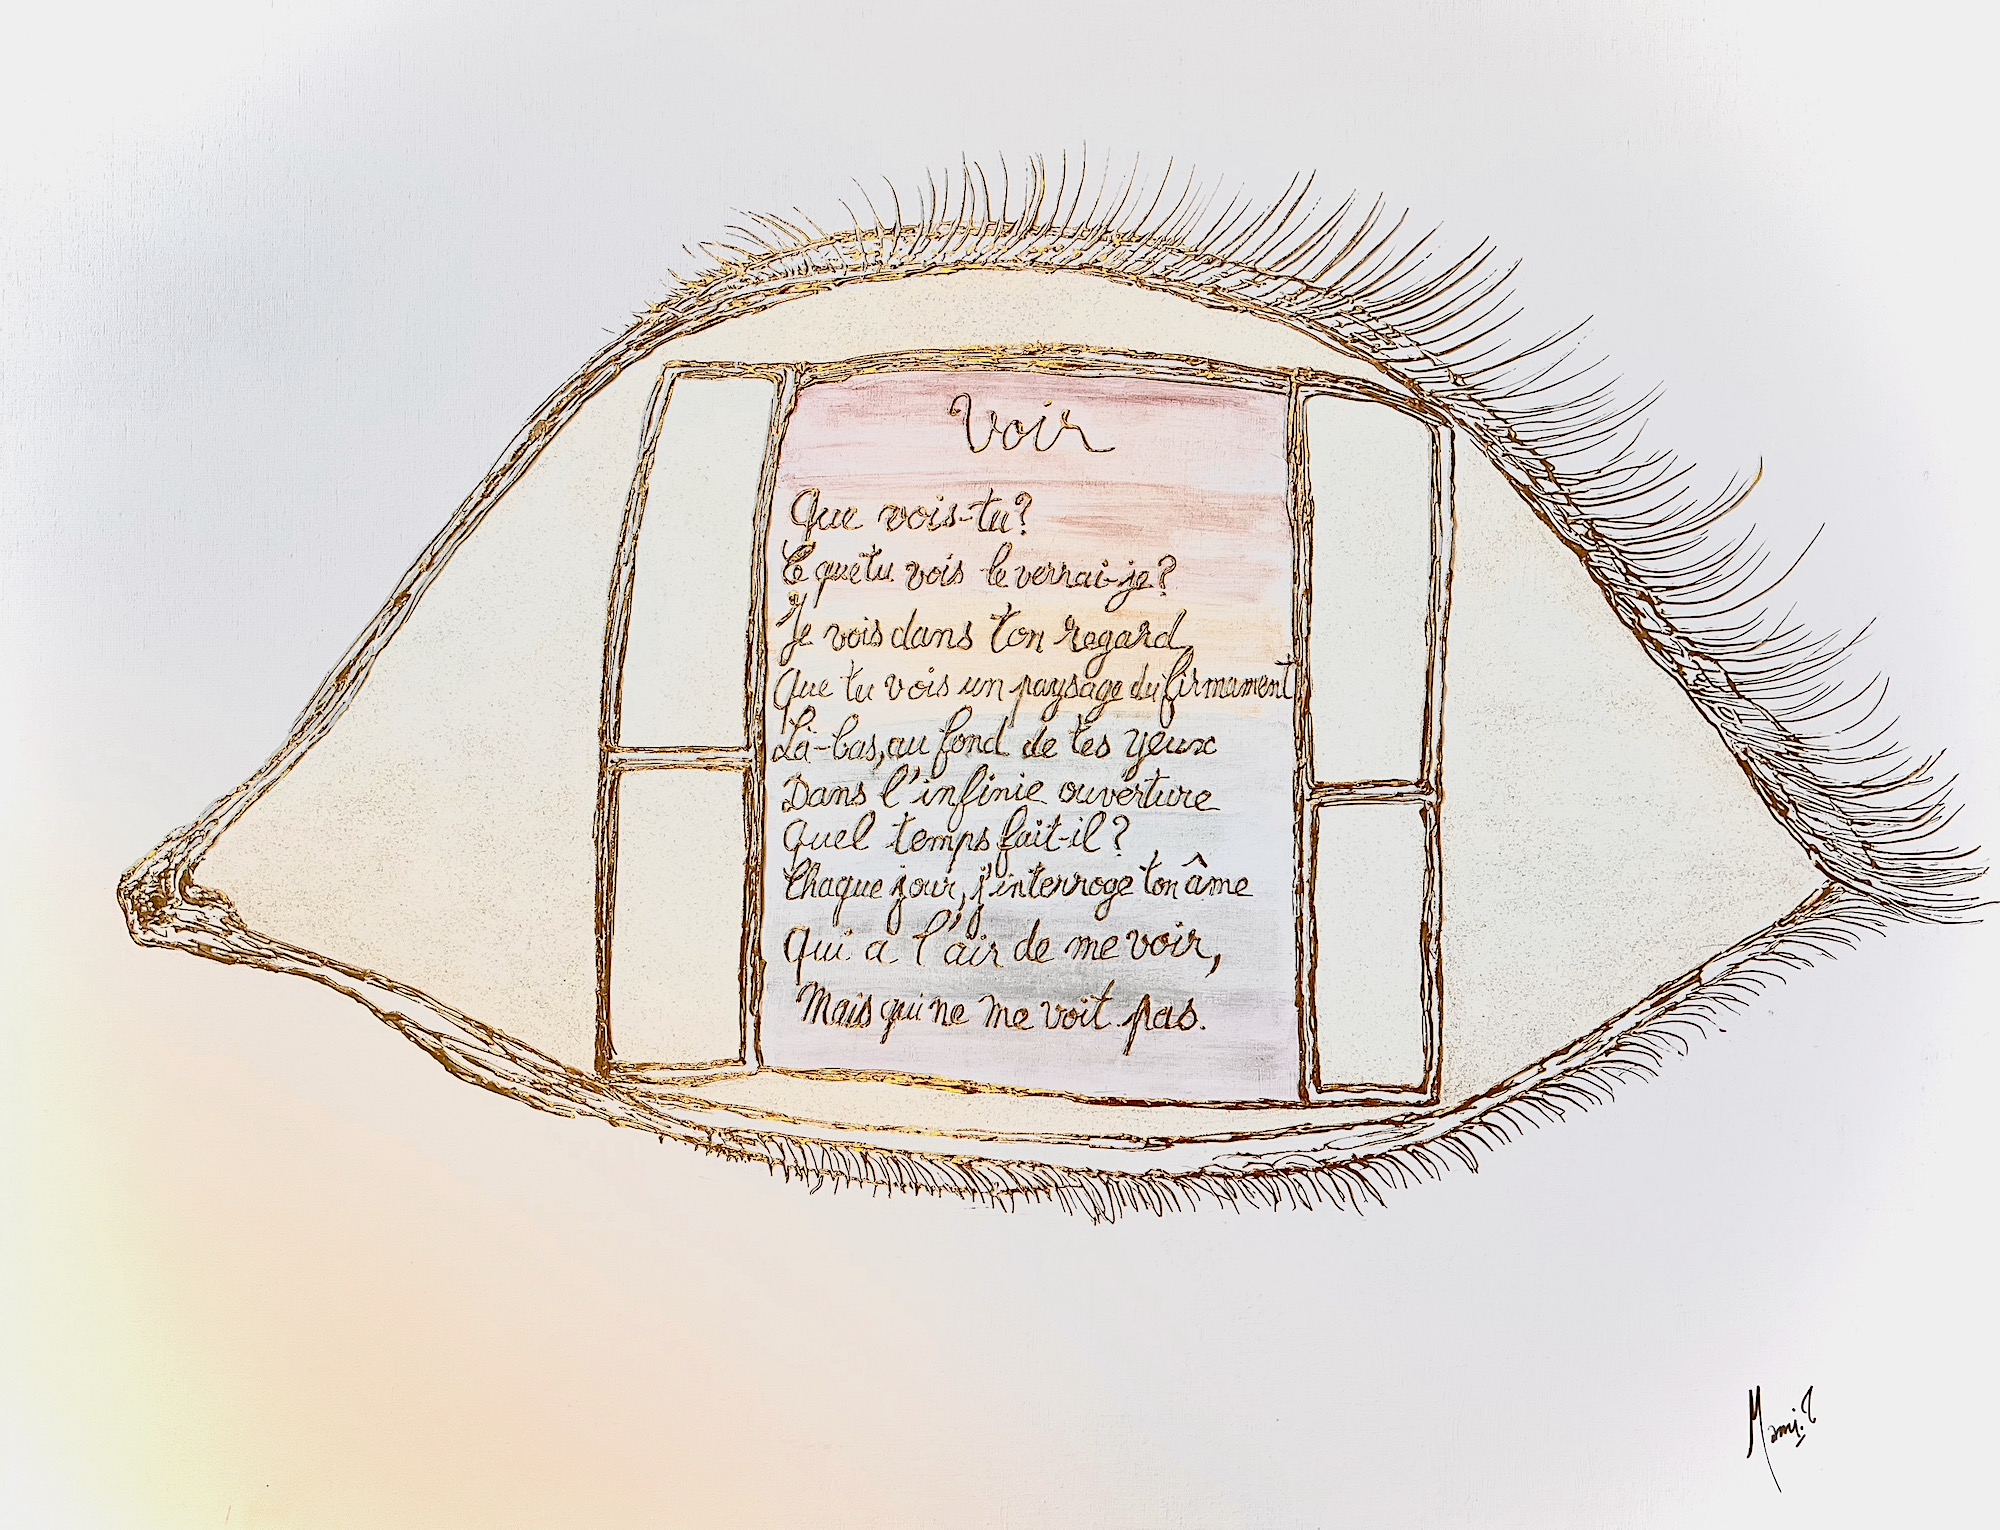 Voir
Que vois-tu?
Ce que tu vois le verrai-je?
Je vois dans ton regard
Que tu vois un paysage du firmament
Là-bas, au fond de tes yeux
Dans l'infinie ouverture
Quel temps fait-il?
Chaque jour, j'interroge ton âme
Qui a l'air de me voir,
Mais qui ne me voit pas.